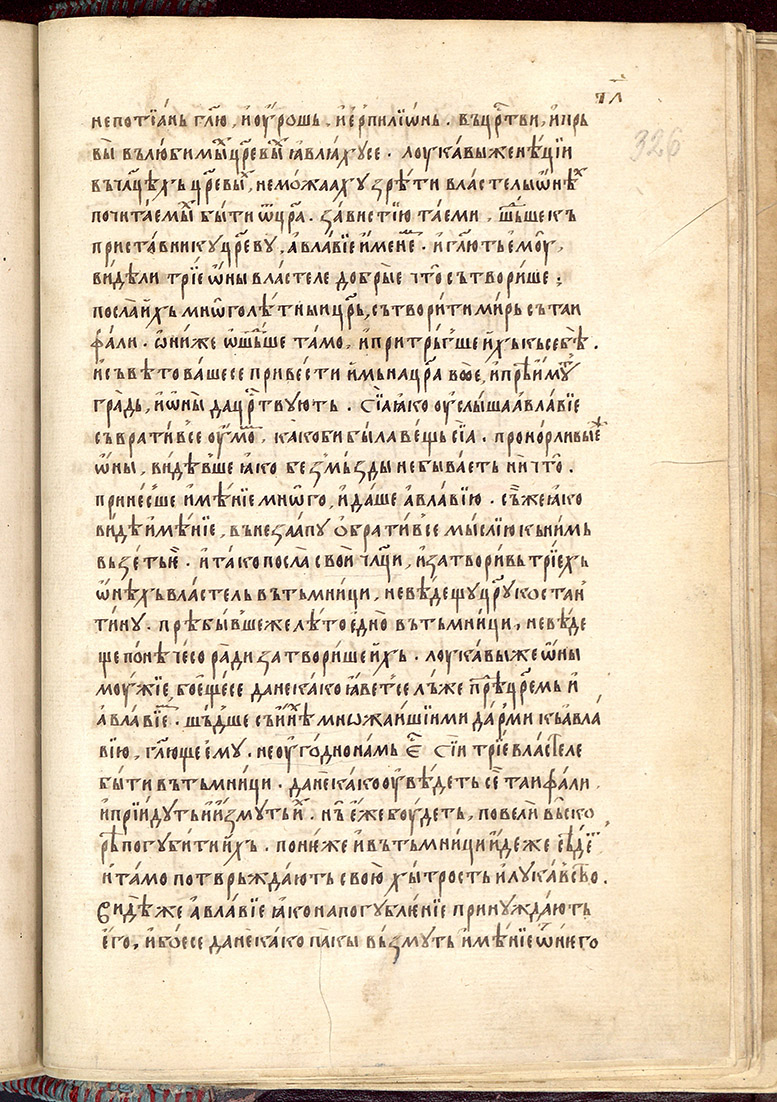 тл҃
326
непотїань гл҃ю, и҆ оу҆рошь. и҆ е҆рпилїѡ҆нь. въ цр҃тви, и҆ прь
вы въ любимы́хь цр҃евы́хь ꙗ҆влꙗ́хусе. лоука́вы же нѣ́цїи
въ чл҃цѣхъ цр҃евы́хь, не мо́жаахꙋ зрѣ́ти властелы ѡ҆нѣ́хь
почита́емы́хь бы́ти ѿ цр҃а. за́вистїю таеми, шь́дше къ
приста́вникꙋ цр҃евꙋ, а҆вла́вїе и҆́мене́мь. и҆ гл҃ють е҆моу̀,
ви́дѣли трїе ѡ҆́ны властеле до́брые что̀ сътвори́ше;
посла и҆́хъ мнѡ́голѣ́тныи цр҃ь, сътвори́ти ми́рь съ таи
фа́ли. ѻ҆ни́же ѿше́дше та́мо, и҆ притрь́гше и҆́хъ къ себѣ̀.
и҆ съвѣ́товаше се приве́сти и҆́мь на цр҃а во́ѥ, и҆ прѣи́мꙋть
гра́дь, и҆ ѡ҆нѝ да цр҃твꙋють. Сїа ꙗ҆́ко оу҆слы́ша а҆вла́вїе
съврати́ все оу҆мо́мь, ка́ко би была ве́щь сїа. проно́рливые́же
ѡ҆́ны, ви́дѣвше ꙗ҆́ко без мь́зды не быва́еть ни что̀.
прине́сше и҆мѣ́нїе мнѡ́го, и҆ да́ше а҆вла́вїю. съ́ же ꙗ҆́ко
ви́дѣ и҆мѣ́нїе, вънеза́апꙋ ѻ҆брати́ все мы́слїю къ ни́мь
въ зе́тые. и҆ та́ко посла̀ свои́ чл҃ци, и҆ затвори́вь трїе́хъ
ѡ҆нѣ́хъ власте́ль въ тьмни́ци, не вѣ́дещꙋ цр҃ꙋ костан
ти́нꙋ. прѣбы́вше же лѣ́то е҆ди́но въ тьмни́ци, не вѣ́де
ще понѣ чесо ра́ди затвори́ше и҆́хъ. лоука́вы же ѡ҆́ны
моу́жїе, бое́ще се да не ка́ко ꙗ҆вет се лъ́же прѣд цр҃емь и҆
а҆вла́вїемь. шь́дше съ и҆нѣ́ми мно́жаишїими да́рми къ а҆вла́
вїю, гл҃юще е҆мꙋ. не оу҆го́дно на́мь є҆сть Сїи трїе вла́стеле
бы́ти въ тьмни́ци. да не ка́ко оу҆вѣ́деть се таифа́ли,
и҆ прїи́дꙋть и҆ и҆змꙋть и҆́хь. нь є҆́же боу́деть, повели въ́ско
рѣ погꙋби́ти и҆́хъ. поне́же и҆ въ тьмни́ци и҆де́же сѣде́ть
и҆ та́мо потвръжда́ють свою̀ хы́трость и҆ лꙋка́вство.
Ви́дѣ же а҆вла́вїе ꙗ҆́ко на погꙋбле́нїе принꙋжда́ють
е҆го̀, и҆ бо́ее се да не ка́ко па́кы въ́змꙋть и҆мѣ́нїе ѿ не́го